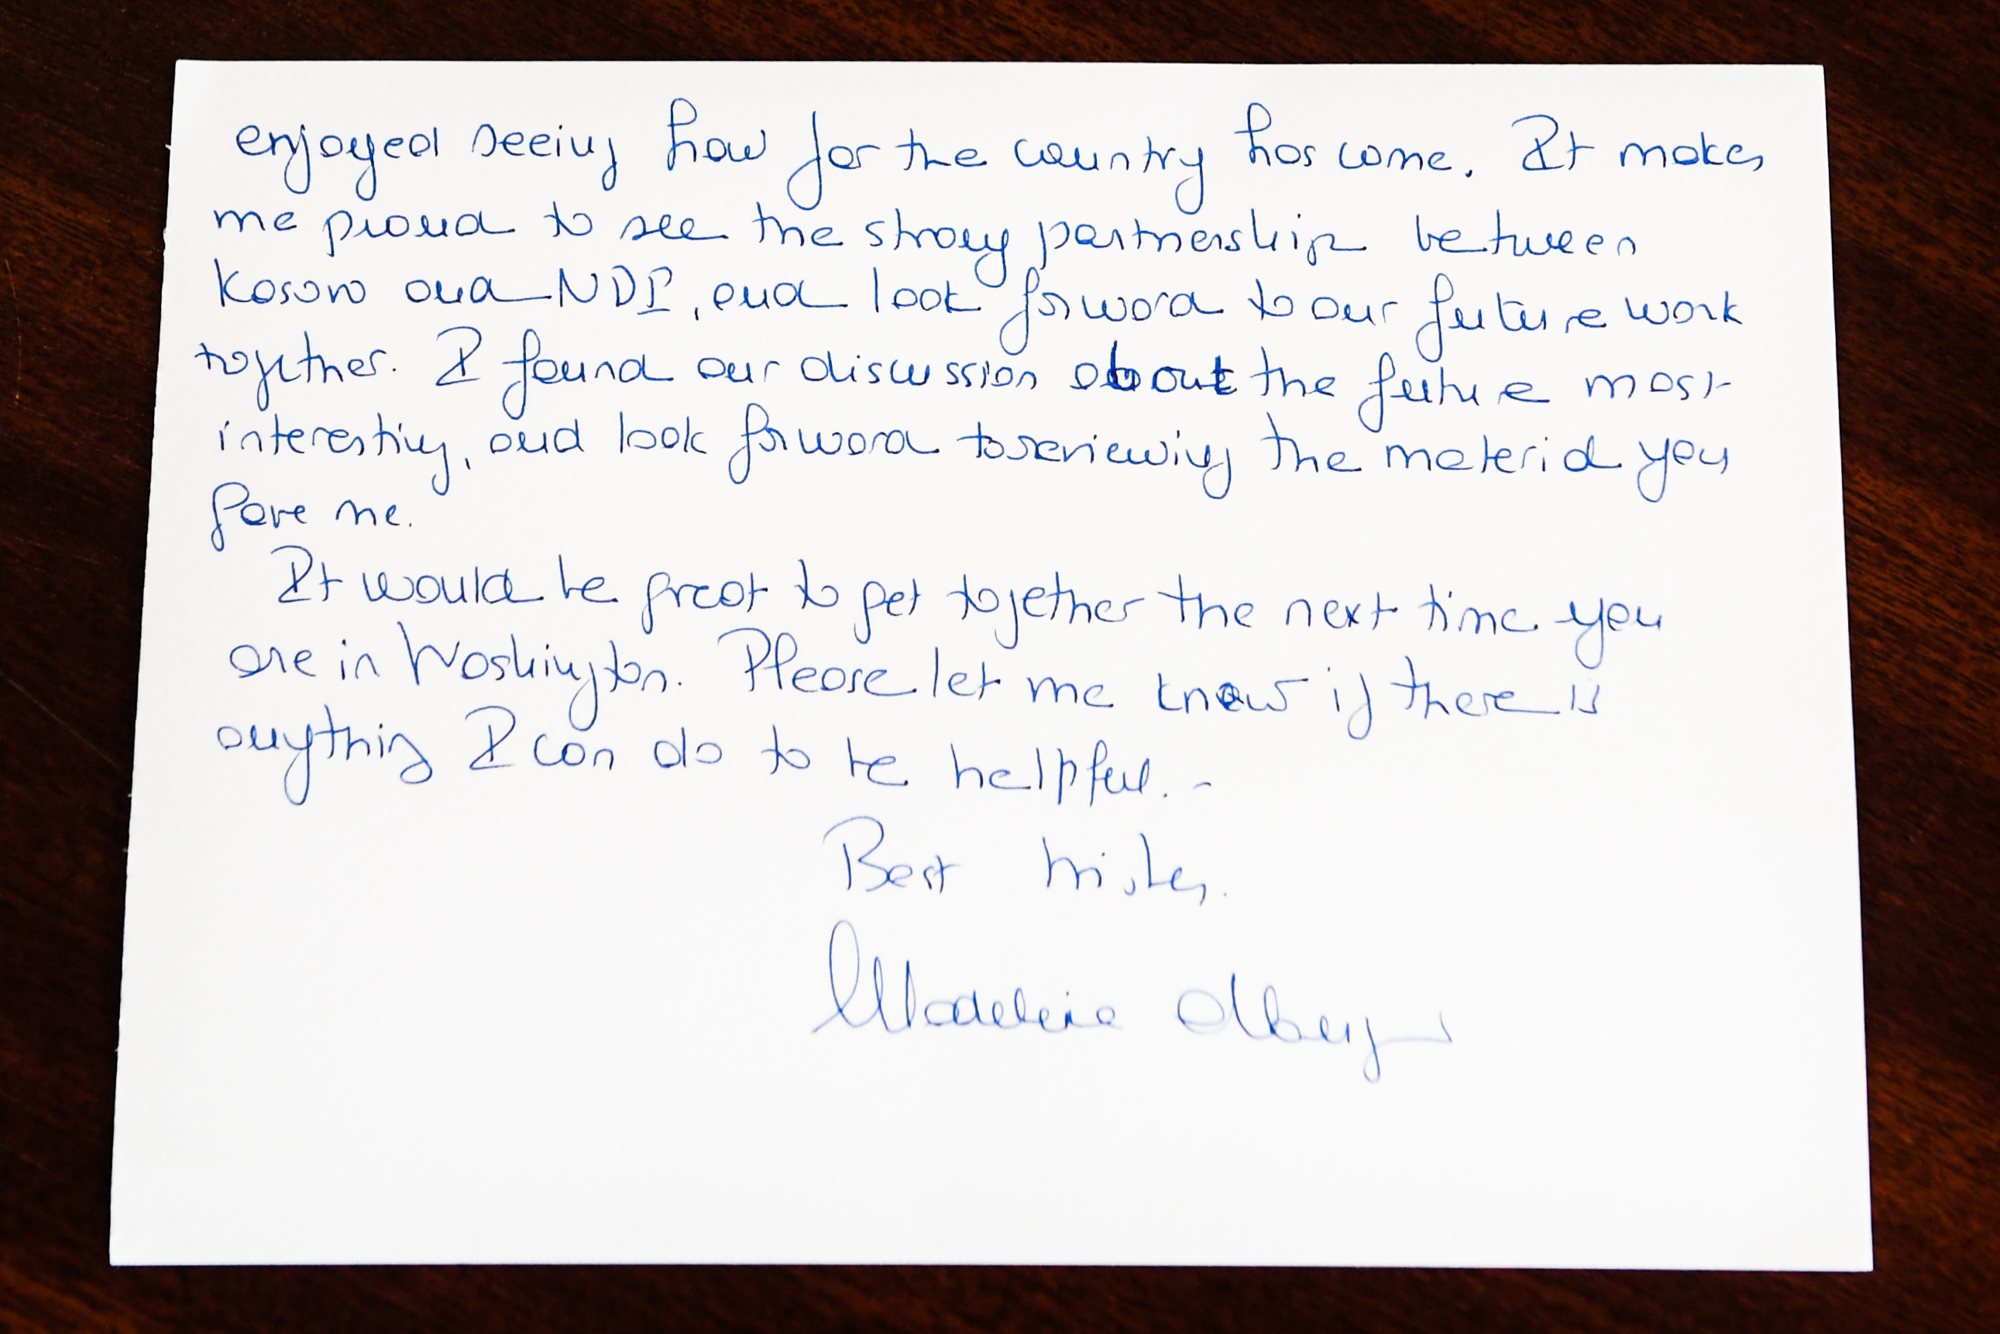 enjoyed seeing how far the country has come. It makes
me proud to see the strong partnership between
Kosovo and NDI, and look forward to our future work
together. I found our discussion about the future most
interesting, and look forward to reviewing the material you
gave me.
It would be great to get together the next time you
are in Washington. Please let me know if there is
anything I can do to be helpful. -
Best wishes,
Madeleine Albright